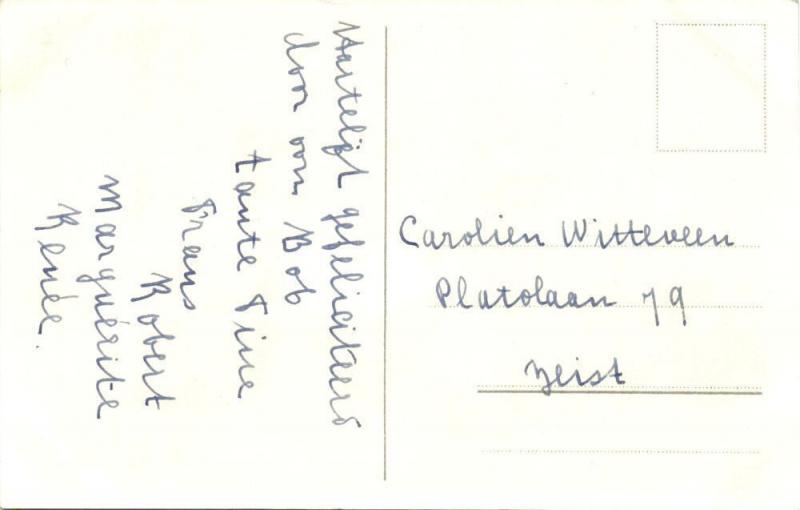 Hartelijk gefeliciteerd
door oom Bob
tante Tine
Frans
Robert
Marguérite
Renée.
Carolien Witteveen
Platolaan 79
Zeist